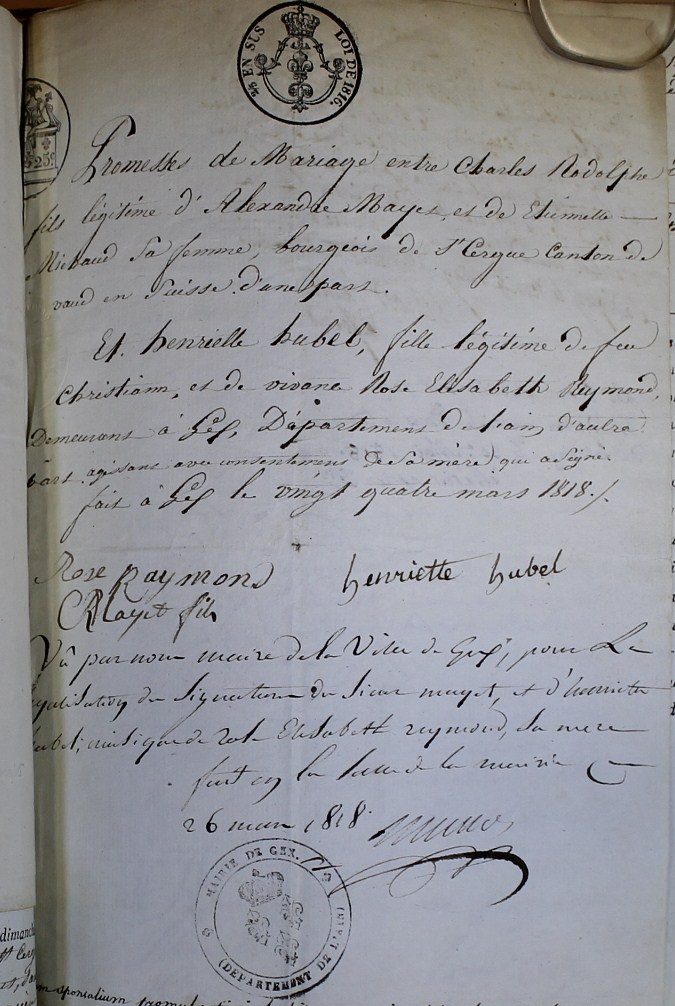 EN SUS LOI DE 1816.
Promesses de Mariage entre Charles Rodolphe
fils légitime d'Alexandre Mayet, et de Etiennette
sa femme, bourgeois de St Cergue Canton de
vaud en Suisse d'une part.
Et henriette hubel, fille légitime de feu
Christiam, et de vivane Rose Elisabeth Raymond,
Demeurans à Gex, Département de l'ain, d'autre
part agissans avec consentement de sa mère qui a signé.
fait à Gex le vingt quatre mars 1818./.
Rose Raymond henriette hubel
Mayet fils
Vû par nous maire de la Ville de Gex, pour
Légalisation des Signatures du Sieur mayet, et d'henriette
hubel, ainsi que de Rose Elisabeth raymond, sa mere
fait en la de la mairie
26 mars 1818.
MAIRIE DE GEX.
(DEPARTEMENT DE L'AIN)
dimanche
sponsalium